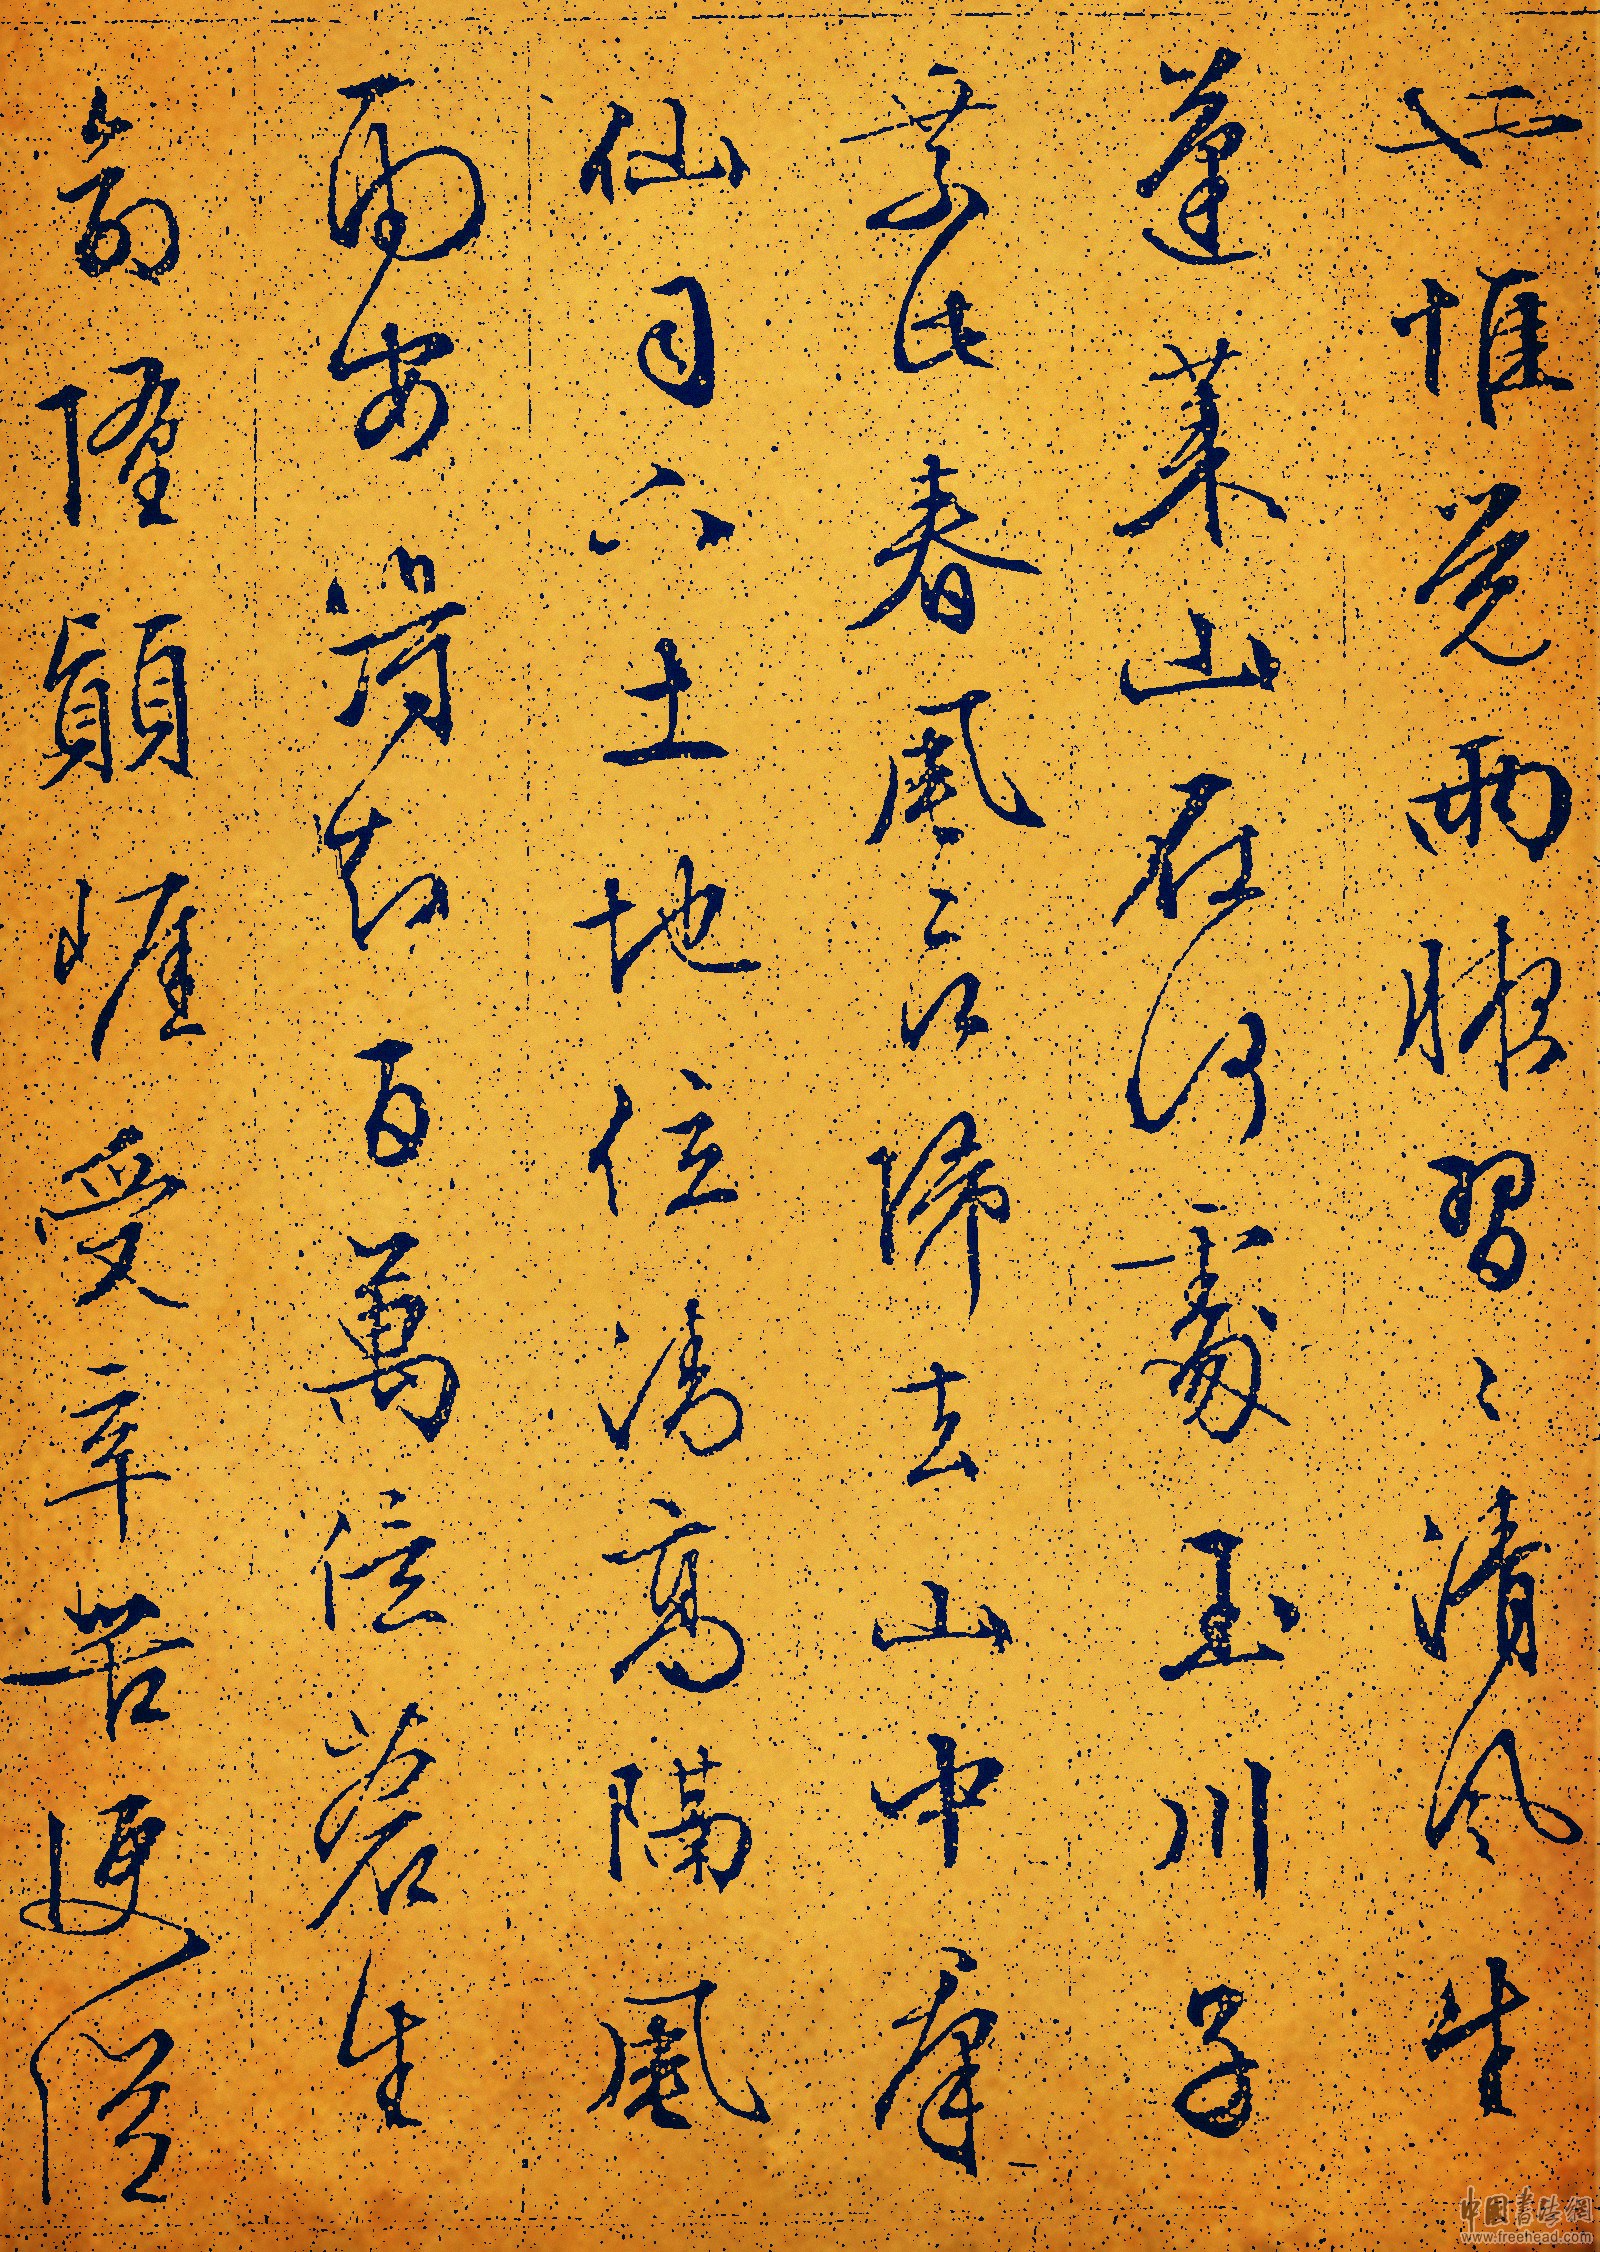 也惟覺兩腋習〻清風生
蓬萊山在何處玉川子
乘此春風欲歸去山中群
仙司下土地位清高隔風
雨安得知百萬億蒼生
命墮顛崖受辛苦便從
中國書法網
www.freehead.com